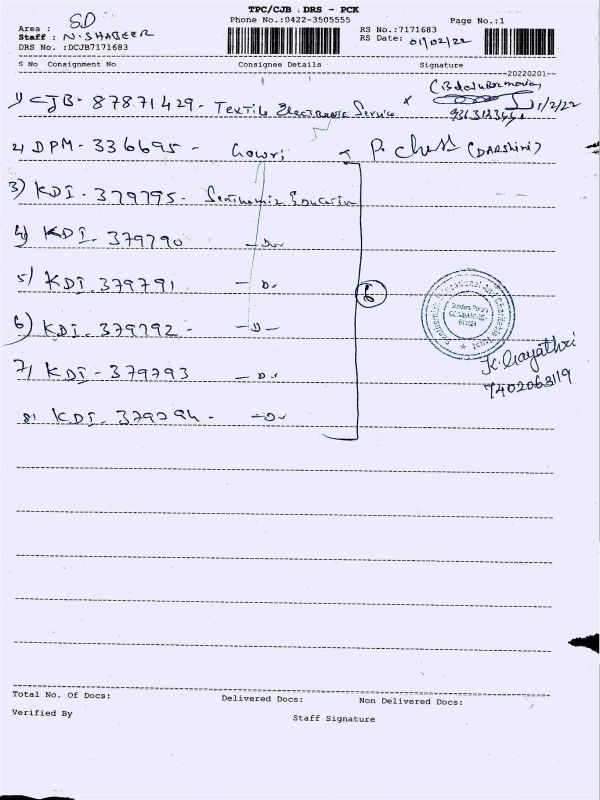 TPC/CJB DRS - PCK
Phone No.:0422-3505555
Page No.:1
Area : SD
Staff : N. SHABEER
DRS No. :DCJB7171683
RS No.:7171683
RS Date: 01/02/22
S No Consignment No Consignee Details Signature
20220201
1) CJB - 87871429 - Textile Electronic Service 1/2/22
2) DPM - 336695 - Gowri (DARSHINI)
3) KDI - 379795 - Education
4) KDI - 379790 - D -
5) KDI - 379791 - D -
6) KDI - 379792 - - D -
7) KDI - 379793 - D -
8) KDI - 379794 - - D -
6
K. Gayathri
7402063119
Total No. Of Docs: Delivered Docs: Non Delivered Docs:
Verified By Staff Signature